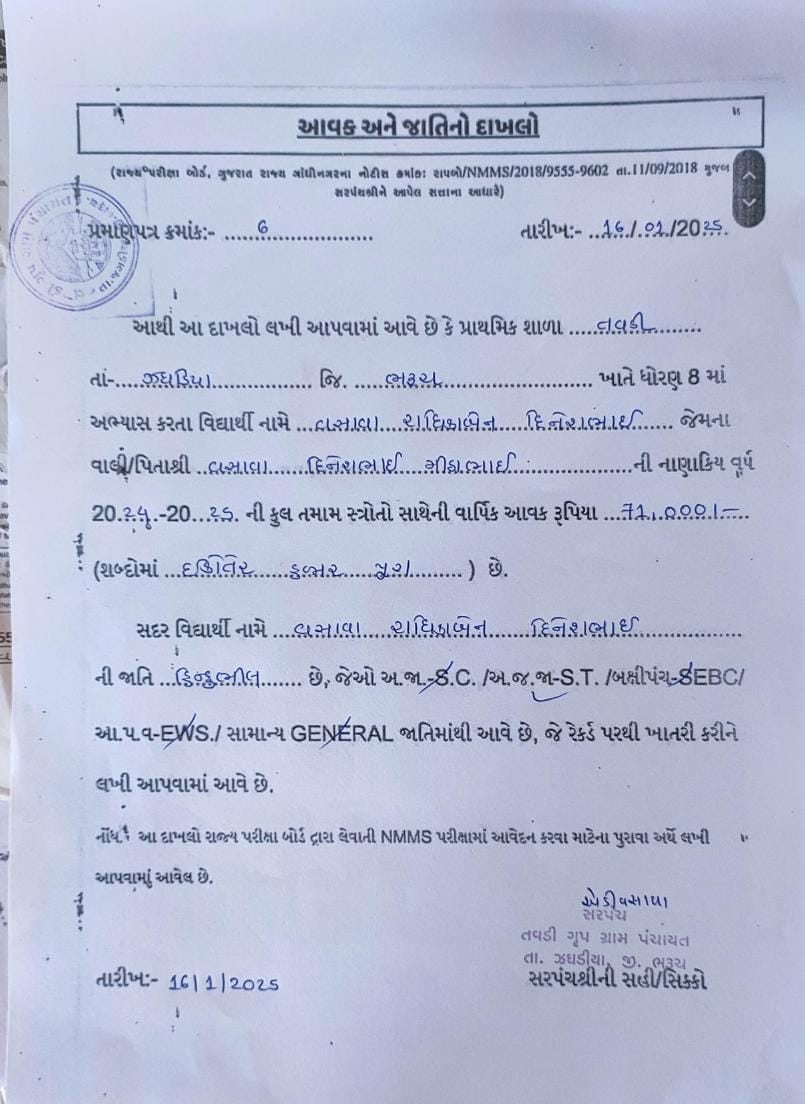 આવક અને જાતિનો દાખલો
(રાજ્ય પરીક્ષા બોર્ડ, ગુજરાત રાજ્ય ગાંધીનગરના નોટીસ ક્રમાંક: રાપબો/NMMS/2018/9555-9602 તા.11/09/2018 મુજબ
સરપંચશ્રીને આપેલ સત્તાના આધારે)
પ્રમાણપત્ર ક્રમાંક:- ......6.................. તારીખ:- ..16../.01./2025.
આથી આ દાખલો લખી આપવામાં આવે છે કે પ્રાથમિક શાળા .....તવડી........
તાં-....ઝઘડિયા............... જિ. ......ભરૂચ...................... ખાતે ધોરણ 8 માં
અભ્યાસ કરતા વિદ્યાર્થી નામે ...વસાવા....રાધિકાબેન.....દિનેશભાઈ...... જેમના
વાલી/પિતાશ્રી ..વસાવા......દિનેશભાઈ.................ની નાણાકિય વર્ષ
20.24.-20...25. ની કુલ તમામ સ્ત્રોતો સાથેની વાર્ષિક આવક રૂપિયા ...71,000/-...
(શબ્દોમાં ...ઇકોતેર......હજાર.....પુરા.........) છે.
સદર વિદ્યાર્થી નામે ....વસાવા.....રાધિકાબેન.......દિનેશભાઈ...............
ની જાતિ ...હિન્દુભીલ....... છે, જેઓ અ.જા.-S.C. /અ.જ.જા-S.T. /બક્ષીપંચ-SEBC/
આ.પ.વ-EWS./ સામાન્ય GENERAL જાતિમાંથી આવે છે, જે રેકર્ડ પરથી ખાતરી કરીને
લખી આપવામાં આવે છે.
નોંધ: આ દાખલો રાજ્ય પરીક્ષા બોર્ડ દ્વારા લેવાતી NMMS પરીક્ષામાં આવેદન કરવા માટેના પુરાવા અર્થે લખી
આપવામાં આવેલ છે.
સરપંચ
તવડી ગૃપ ગ્રામ પંચાયત
તા. ઝઘડીયા, જી. ભરૂચ
તારીખ:- 16/1/2025 સરપંચશ્રીની સહી/સિક્કો